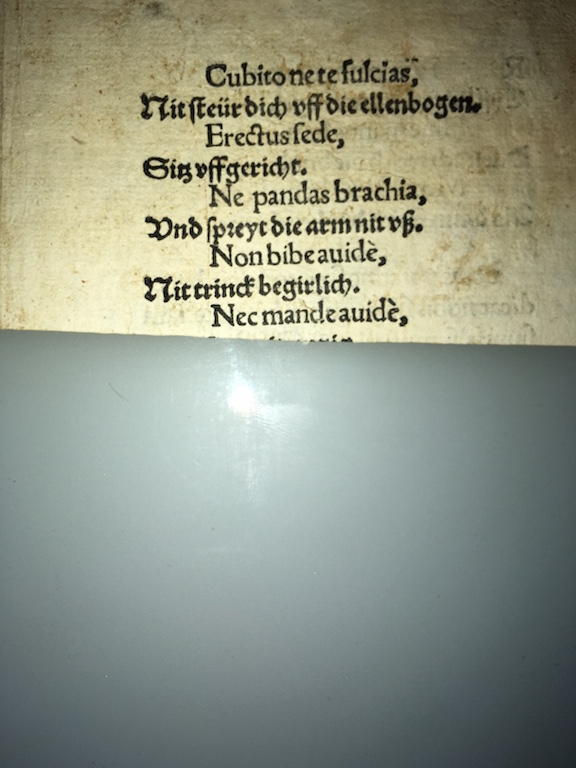 Cubito ne te fulcias,
Nit steür dich vff die ellenbogen.
Erectus sede,
Sitz vffgericht.
Ne pandas brachia,
Vnd spreyt die arm nit vß.
Non bibe auidè,
Nit trinck begirlich.
Nec mande auidè,